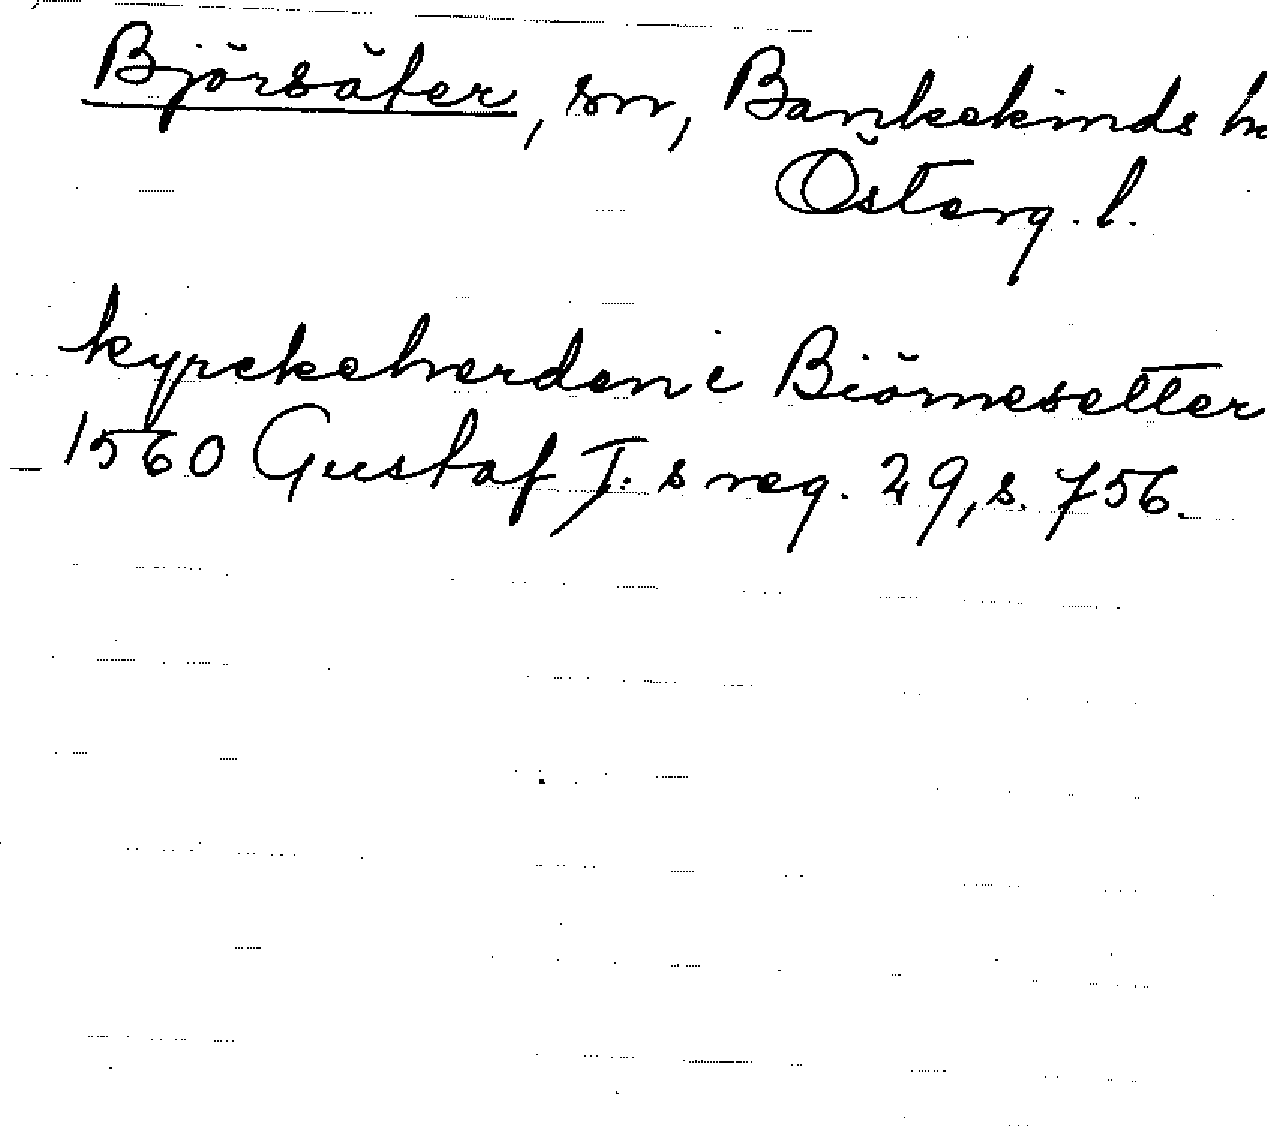 Björsäter, sn, Bankekinds h
Österg. l.
kyrckeherden i Biörnesetter
1560 Gustaf I:s reg. 29, s. 756.